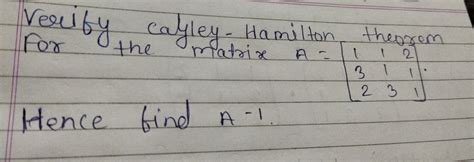 Verify Cayley-Hamilton theorem
For the matrix A = [1 1 2
3 1 1
2 3 1].
Hence find A-1.